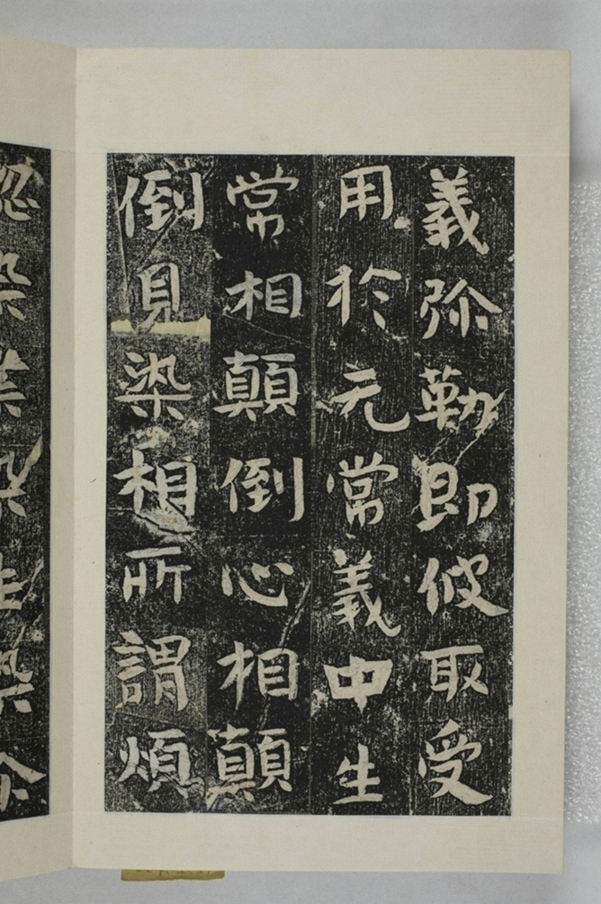 義弥勒即彼取受
用於元常義中生
常相顛倒心相顛
倒見染相所謂煩